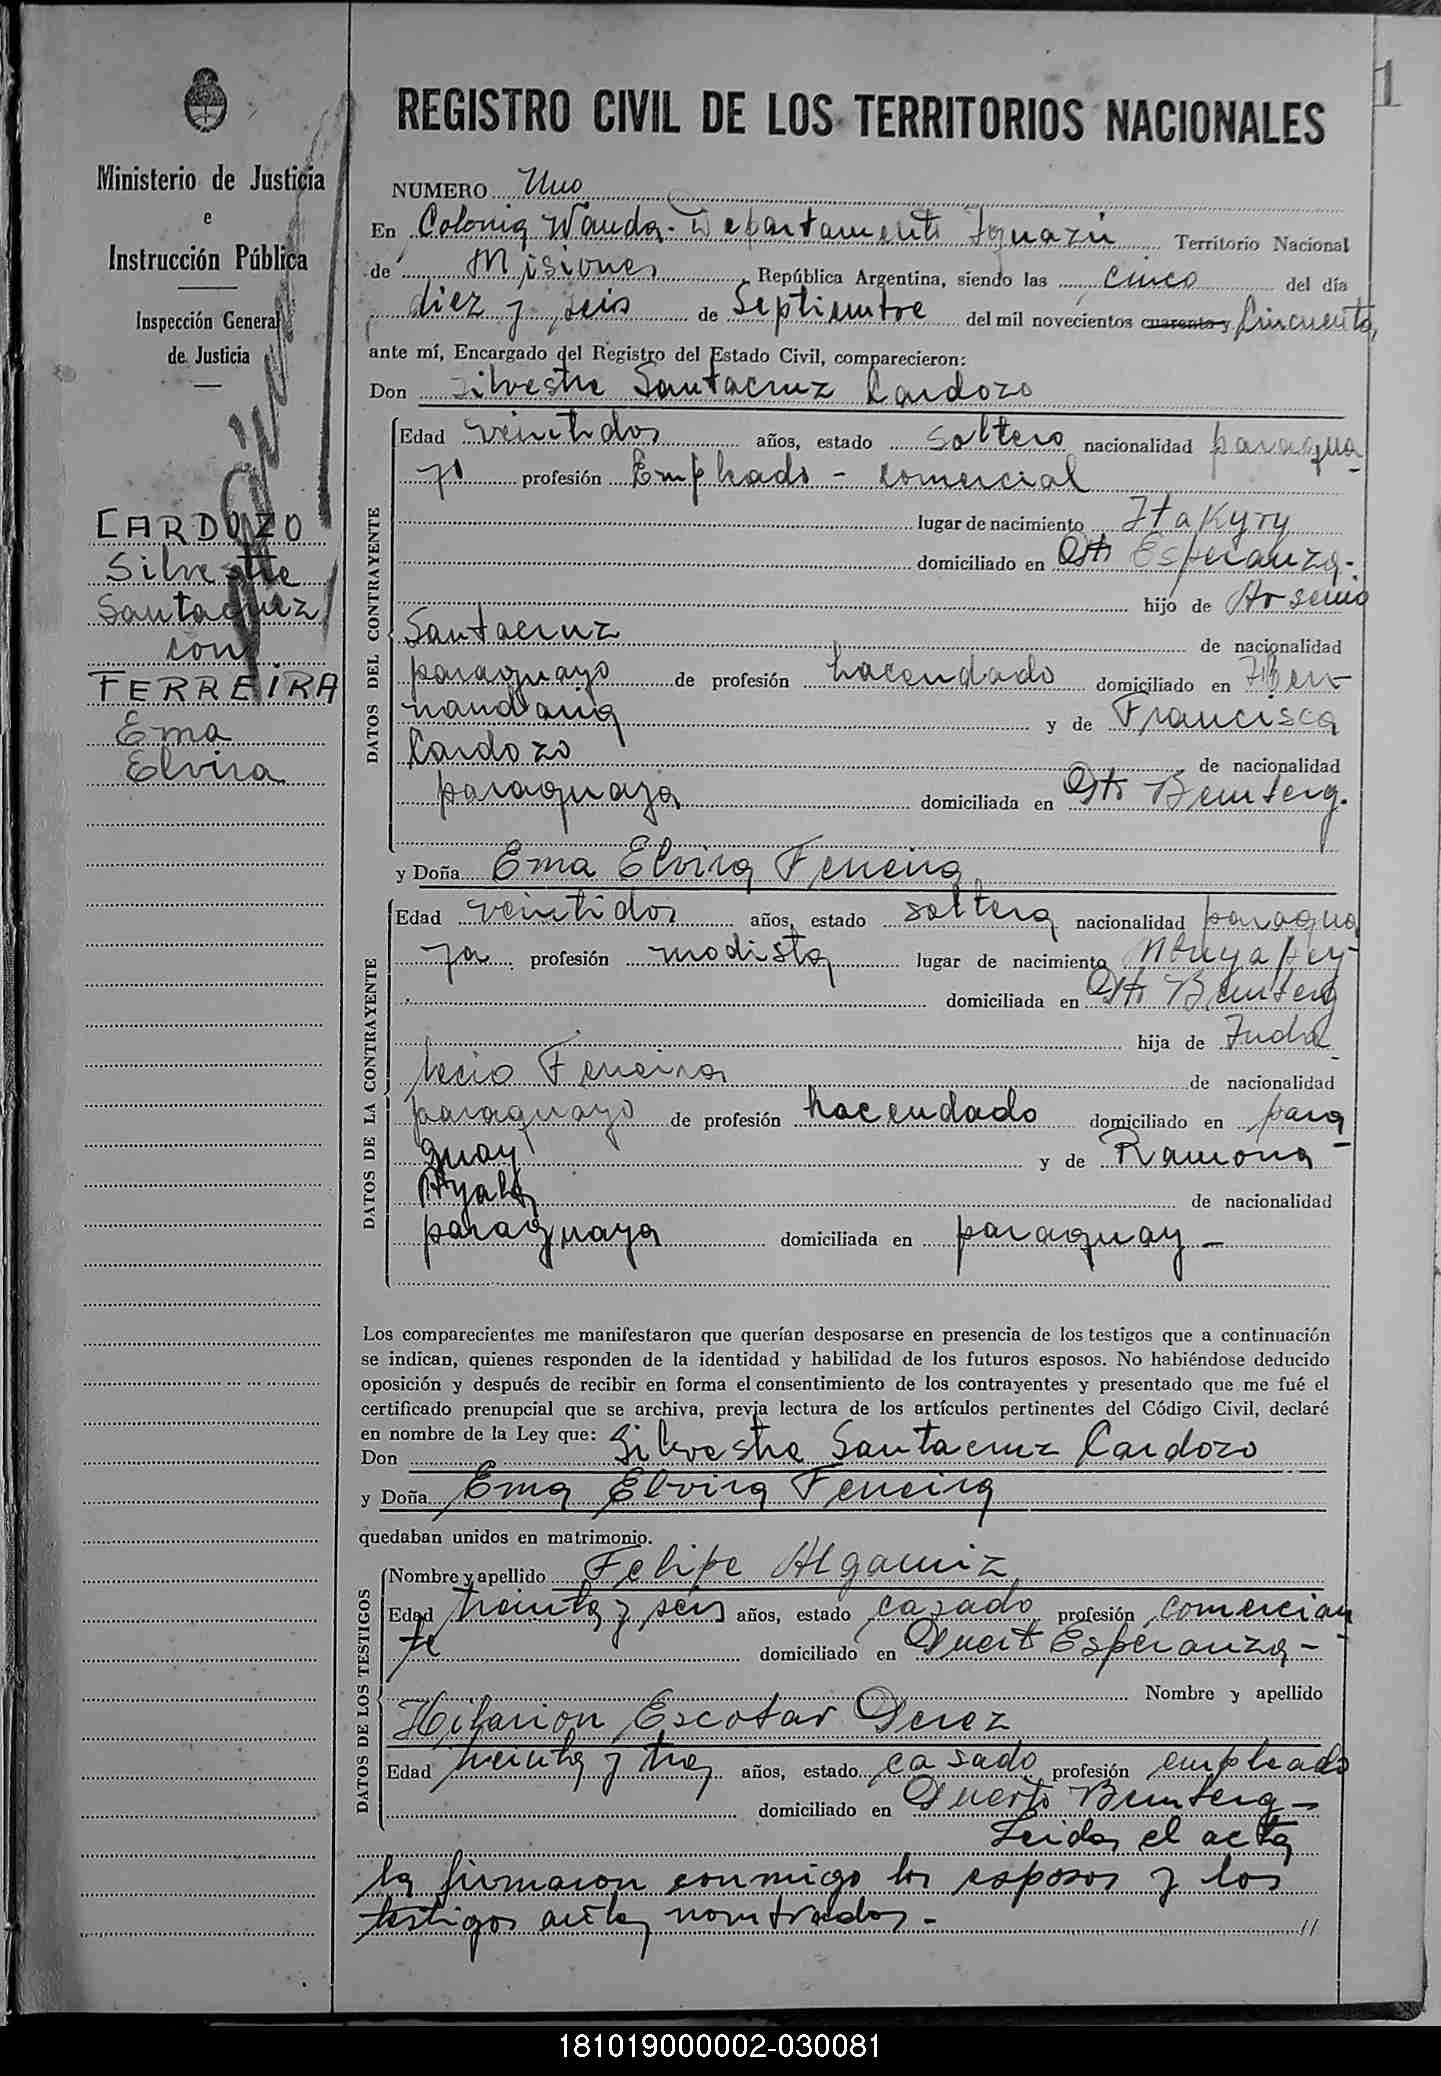 1
REGISTRO CIVIL DE LOS TERRITORIOS NACIONALES
Ministerio de Justicia
e
Instrucción Pública
Inspección General
de Justicia
CARDOZO
Silvestre
Santacruz
con
FERREIRA
Ema
Elvira
NUMERO Uno
En Colonia Wanda - Departamento Iguazú Territorio Nacional
de Misiones República Argentina, siendo las cinco del día
diez y seis de Septiembre del mil novecientos cuarenta y Cincuenta,
ante mí, Encargado del Registro del Estado Civil, comparecieron:
Don Silvestre Santacruz Cardozo
DATOS DEL CONTRAYENTE
Edad veintidos años, estado soltero nacionalidad paragua-
yo profesión Empleado - comercial
lugar de nacimiento Itakyry
domiciliado en Pto Esperanza-
hijo de Arsenio
Santacruz de nacionalidad
paraguayo de profesión hacendado domiciliado en Hber
nandaria y de Francisca
Cardozo de nacionalidad
paraguaya domiciliada en Pto Bemberg.
y Doña Ema Elvira Ferreira
DATOS DE LA CONTRAYENTE
Edad veintidos años, estado soltera nacionalidad paragua
ya profesión modista lugar de nacimiento Mbuyapey
domiciliada en Pto Bemberg
hija de Inda-
lecio Ferreira de nacionalidad
paraguayo de profesión hacendado domiciliado en para
guay y de Ramona
Ayala de nacionalidad
paraguaya domiciliada en paraguay -
Los comparecientes me manifestaron que querían desposarse en presencia de los testigos que a continuación
se indican, quienes responden de la identidad y habilidad de los futuros esposos. No habiéndose deducido
oposición y después de recibir en forma el consentimiento de los contrayentes y presentado que me fué el
certificado prenupcial que se archiva, previa lectura de los artículos pertinentes del Código Civil, declaré
en nombre de la Ley que:
Don Silvestre Santacruz Cardozo
y Doña Ema Elvira Ferreira
quedaban unidos en matrimonio.
DATOS DE LOS TESTIGOS
Nombre y apellido Felipe Alganiz
Edad treinta y seis años, estado casado profesión comercian
te domiciliado en Puert Esperanza -
Nombre y apellido
Hilarion Escobar Perez
Edad treinta y tres años, estado casado profesión empleado
domiciliado en Puerto Bemberg -
Leida el acta
la firmaron conmigo los esposos y los
testigos antes nombrados. - //
181019000002-030081